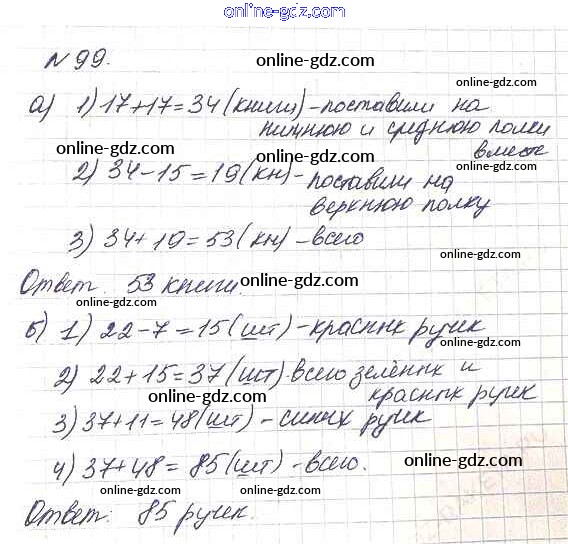 online-gdz.com
№ 99. online-gdz.com
а) 1) 17+17=34 (книги) - поставили на
online-gdz.com online-gdz.com
нижнюю и среднюю полки
вместе
online-gdz.com online-gdz.com
2) 34-15=19 (кн) - поставили на
верхнюю полку
online-gdz.com
3) 34+19=53 (кн) - всего
online-gdz.com
Ответ. 53 книги.
online-gdz.com online-gdz.com
б) 1) 22-7=15 (шт) - красных ручек
online-gdz.com
2) 22+15=37 (шт) всего зелёных и
красных ручек
online-gdz.com
3) 37+11=48 (шт) - синих ручек
online-gdz.com
4) 37+48=85 (шт) - всего.
online-gdz.com
online-gdz.com online-gdz.com
Ответ: 85 ручек.
online-gdz.com